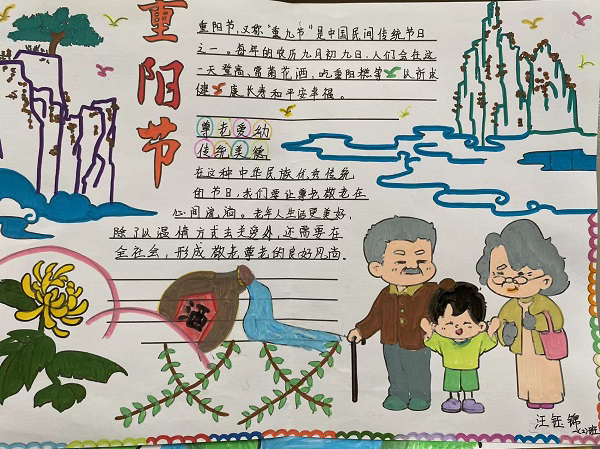 重阳节
重阳节,又称"重九节"是中国民间传统节日
之一。每年的农历九月初九日,人们会在这
一天登高、赏菊花酒、吃重阳糕等以祈求
健康长寿和平安幸福。
尊老爱幼
传统美德
在这种中华民族优良传统
的节日,我们要让尊老敬老在
心间流淌。老年人生活更美好,
除了以温情方式去关爱外,还需要在
全社会,形成敬老尊老的良好风尚。
酒
汪钰锦
一(2)班